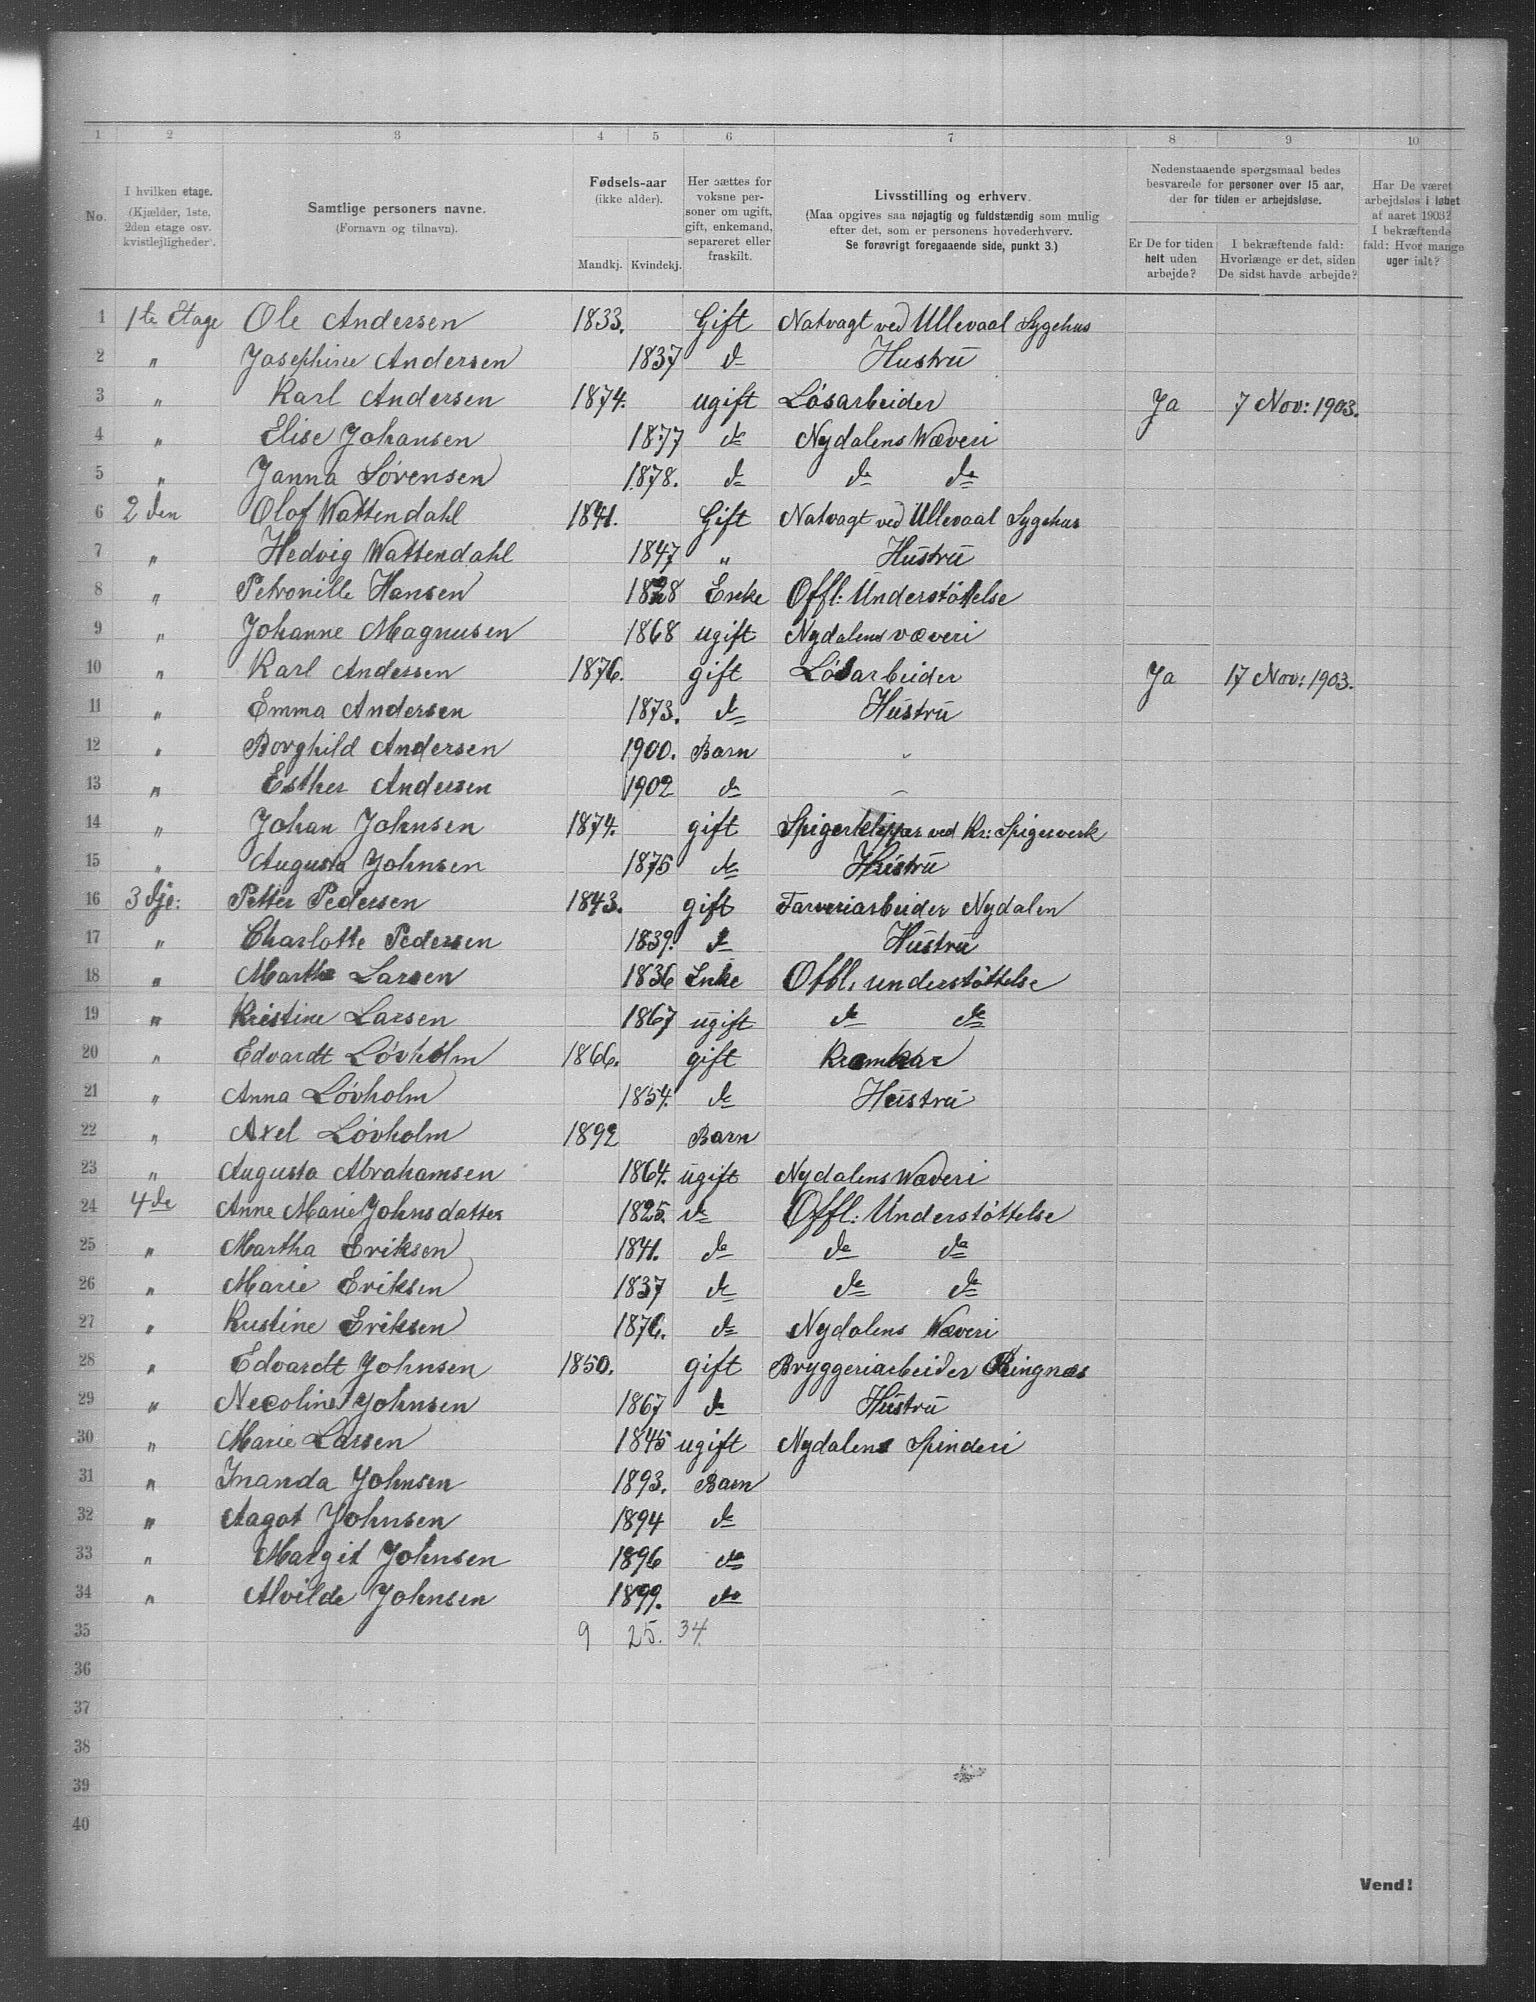 1 2 3 4 5 6 7 8 9 10
No.
I hvilken etage.
(Kjælder, 1ste,
2den etage osv.
kvistlejligheder).
Samtlige personers navne.
(Fornavn og tilnavn).
Fødsels-aar
(ikke alder).
Mandkj. Kvindekj.
Her sættes for
voksne per-
soner om ugift,
gift, enkemand,
separeret eller
fraskilt.
Livsstilling og erhverv.
(Maa opgives saa nøjagtig og fuldstændig som mulig
efter det, som er personens hovederhverv.
Se forøvrigt foregaaende side, punkt 3.)
Nedenstaaende spørgsmaal bedes
besvarede for personer over 15 aar,
der for tiden er arbejdsløse.
Er De for tiden
helt uden
arbejde?
I bekræftende fald:
Hvorlænge er det, siden
De sidst havde arbejde?
Har De været
arbejdsløs i løbet
af aaret 1903?
I bekræftende
fald: Hvor mange
uger ialt?
1 1te Etage Ole Andersen 1833. Gift Natvagt ved Ullevaal Sygehus
2 " Josephine Andersen 1837 do Hustru
3 " Karl Andersen 1874. ugift Løsarbeider Ja 7 Nov: 1903.
4 " Elise Johansen 1877 do Nydalens Væveri
5 " Janna Sørensen 1878. do do do
6 2den Olof Wattendahl 1841. Gift Natvagt ved Ullevaal Sygehus
7 " Hedvig Wattendahl 1847 " Hustru
8 " Petronille Hansen 1828 Enke Offl: Understøttelse
9 " Johanne Magnusen 1868 ugift Nydalens væveri
10 " Karl Andersen 1876. gift Løsarbeider Ja 17 Nov: 1903.
11 " Emma Andersen 1873. do Hustru
12 " Borghild Andersen 1900. Barn "
13 " Esther Andersen 1902 do
14 " Johan Johnsen 1874. gift Spigerklipper ved Kr: Spigerverk
15 " Augusta Johnsen 1875 do Hustru
16 3dje: Petter Pedersen 1843. gift Farveriarbeider Nydalen
17 " Charlotte Pedersen 1839. do Hustru
18 " Marthe Larsen 1836 Enke Offl. understøttelse
19 " Kristine Larsen 1867 ugift do do
20 " Edvardt Løvholm 1866. gift Kramkar
21 " Anna Løvholm 1854. do Hustru
22 " Axel Løvholm 1892 Barn
23 " Augusta Abrahamsen 1864. ugift Nydalens Væveri
24 4de Anne Marie Johnsdatter 1825. do Offl: Understøttelse
25 " Martha Eriksen 1841. do do do
26 " Marie Eriksen 1837 do do do
27 " Kristine Eriksen 1876. do Nydalens Væveri
28 " Edvardt Johnsen 1850. gift Bryggeriarbeider Ringnes
29 " Necoline Johnsen 1867 do Hustru
30 " Marie Larsen 1845 ugift Nydalens Spinderi
31 " Inanda Johnsen 1893. Barn
32 " Aagot Johnsen 1894 do
33 " Margit Johnsen 1896 do
34 " Alvilde Johnsen 1899. do
35 9 25. 34.
36
37
38
39
40
Vend!